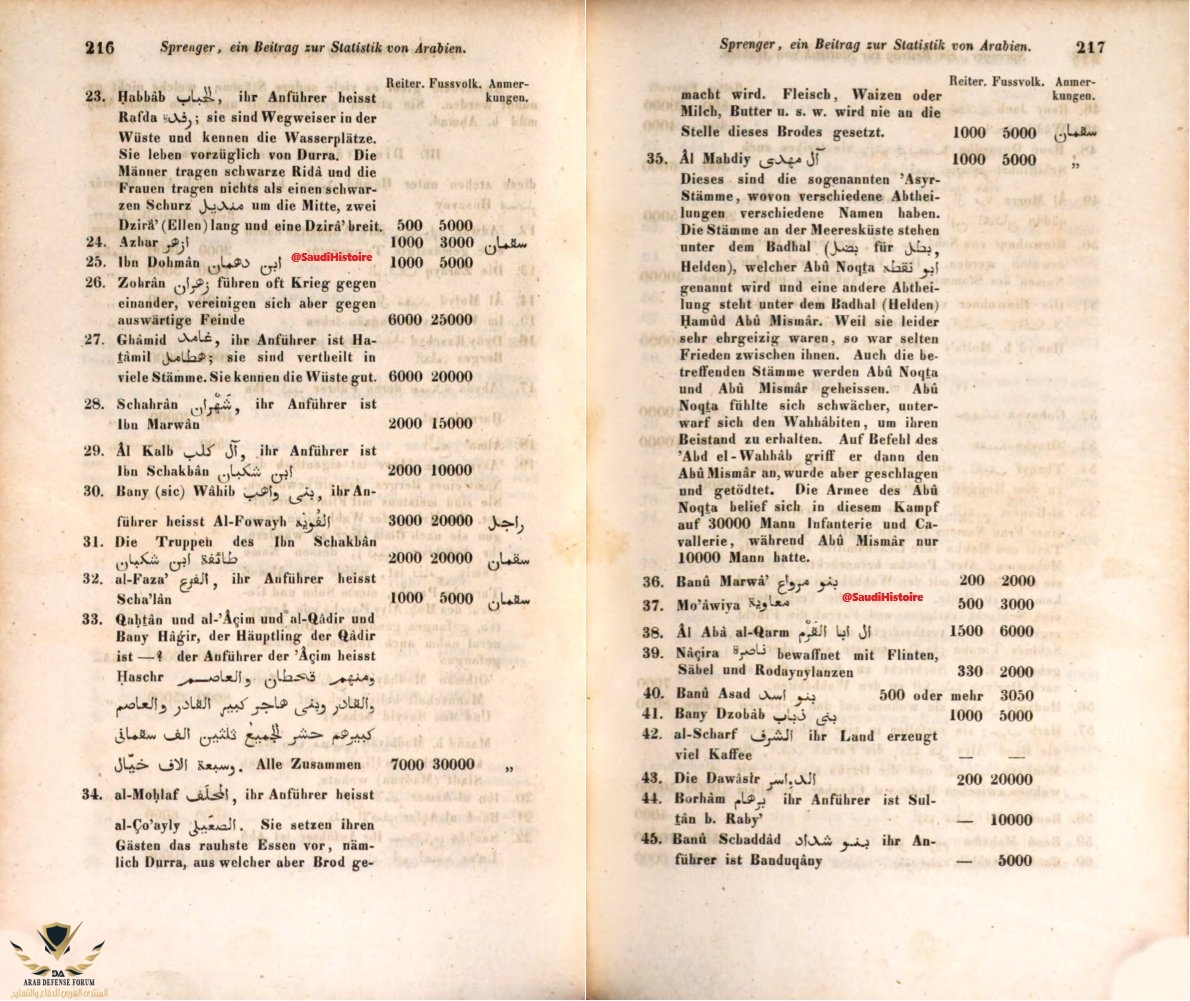 216 Sprenger, ein Beitrag zur Statistik von Arabien.
Reiter. Fussvolk. Anmer-
kungen.
23. Ḥabbâb الحباب, ihr Anführer heisst
Rafda رفدة; sie sind Wegweiser in der
Wüste und kennen die Wasserplätze.
Sie leben vorzüglich von Durra. Die
Männer tragen schwarze Ridâ und die
Frauen tragen nichts als einen schwar-
zen Schurz منديل um die Mitte, zwei
Dzirâ' (Ellen) lang und eine Dzirâ' breit. 500 5000
24. Azhar ازهر 1000 3000 سقمان
25. Ibn Dohmân ابن دهمان 1000 5000
@SaudiHistoire
26. Zohrân زهران führen oft Krieg gegen
einander, vereinigen sich aber gegen
auswärtige Feinde 6000 25000
27. Ghâmid غامد, ihr Anführer ist Ha-
ṭâmil هطامل; sie sind vertheilt in
viele Stämme. Sie kennen die Wüste gut. 6000 20000
28. Schahrân شَهْران, ihr Anführer ist
Ibn Marwân 2000 15000
29. Âl Kalb آل كلب, ihr Anführer ist
Ibn Schakbân ابن شكبان 2000 10000
30. Bany (sic) Wâhib بنى واهب, ihr An-
führer heisst Al-Fowayh الفُويْه 3000 20000 راجل
31. Die Truppen des Ibn Schakbân
طائفة ابن شكبان 2000 20000 سقمان
32. al-Faza' الفزع, ihr Anführer heisst
Scha'lân 1000 5000 سقمان
33. Qaḥṭân und al-'Âçim und al-Qâdir und
Bany Hâǵir, der Häuptling der Qâdir
ist —? der Anführer der 'Âçim heisst
Ḥaschr ومنهم قحطان والعاصم
والقادر وبنى هاجر كبير القادر والعاصم
كبيرهم حشر الجميعُ ثلثين الف سقمانى
وسبعة الاف خيّال. Alle Zusammen 7000 30000 „
34. al-Moḥlaf المحلَف, ihr Anführer heisst
al-Ço'ayly الصعَيلى. Sie setzen ihren
Gästen das rauhste Essen vor, näm-
lich Durra, aus welcher aber Brod ge-
DA
ARAB DEFENSE FORUM
المنتدى العربي للدفاع والتسليح
Sprenger, ein Beitrag zur Statistik von Arabien. 217
Reiter. Fussvolk. Anmer-
kungen.
macht wird. Fleisch, Waizen oder
Milch, Butter u. s. w. wird nie an die
Stelle dieses Brodes gesetzt. 1000 5000 سقمان
35. Âl Mahdiy آل مهدى 1000 5000 „
Dieses sind die sogenannten 'Asyr-
Stämme, wovon verschiedene Abthei-
lungen verschiedene Namen haben.
Die Stämme an der Meeresküste stehen
unter dem Badhal (بضل für بطل,
Helden), welcher Abû Noqta ابو نقطه
genannt wird und eine andere Abthei-
lung steht unter dem Badhal (Helden)
Ḥamûd Abû Mismâr. Weil sie leider
sehr ehrgeizig waren, so war selten
Frieden zwischen ihnen. Auch die be-
treffenden Stämme werden Abû Noqṭa
und Abû Mismâr geheissen. Abû
Noqṭa fühlte sich schwächer, unter-
warf sich den Wahhâbiten, um ihren
Beistand zu erhalten. Auf Befehl des
'Abd el-Wahhâb griff er dann den
Abû Mismâr an, wurde aber geschlagen
und getödtet. Die Armee des Abû
Noqṭa belief sich in diesem Kampf
auf 30000 Mann Infanterie und Ca-
vallerie, während Abû Mismâr nur
10000 Mann hatte.
36. Banû Marwâ' بنو مرواع 200 2000
37. Mo'âwiya معاوية 500 3000
@SaudiHistoire
38. Âl Abâ al-Qarm ال ابا القَرْم 1500 6000
39. Nâçira ناصرة bewaffnet mit Flinten,
Säbel und Rodaynylanzen 330 2000
40. Banû Asad بنو اسد 500 oder mehr 3050
41. Bany Dzobâb بنى ذباب 1000 5000
42. al-Scharf الشرف ihr Land erzeugt
viel Kaffee — —
43. Die Dawâsir الدواسر 200 20000
44. Borhâm برهام ihr Anführer ist Sul-
ṭân b. Raby' — 10000
45. Banû Schaddâd بنو شداد ihr An-
führer ist Banduqâny — 5000